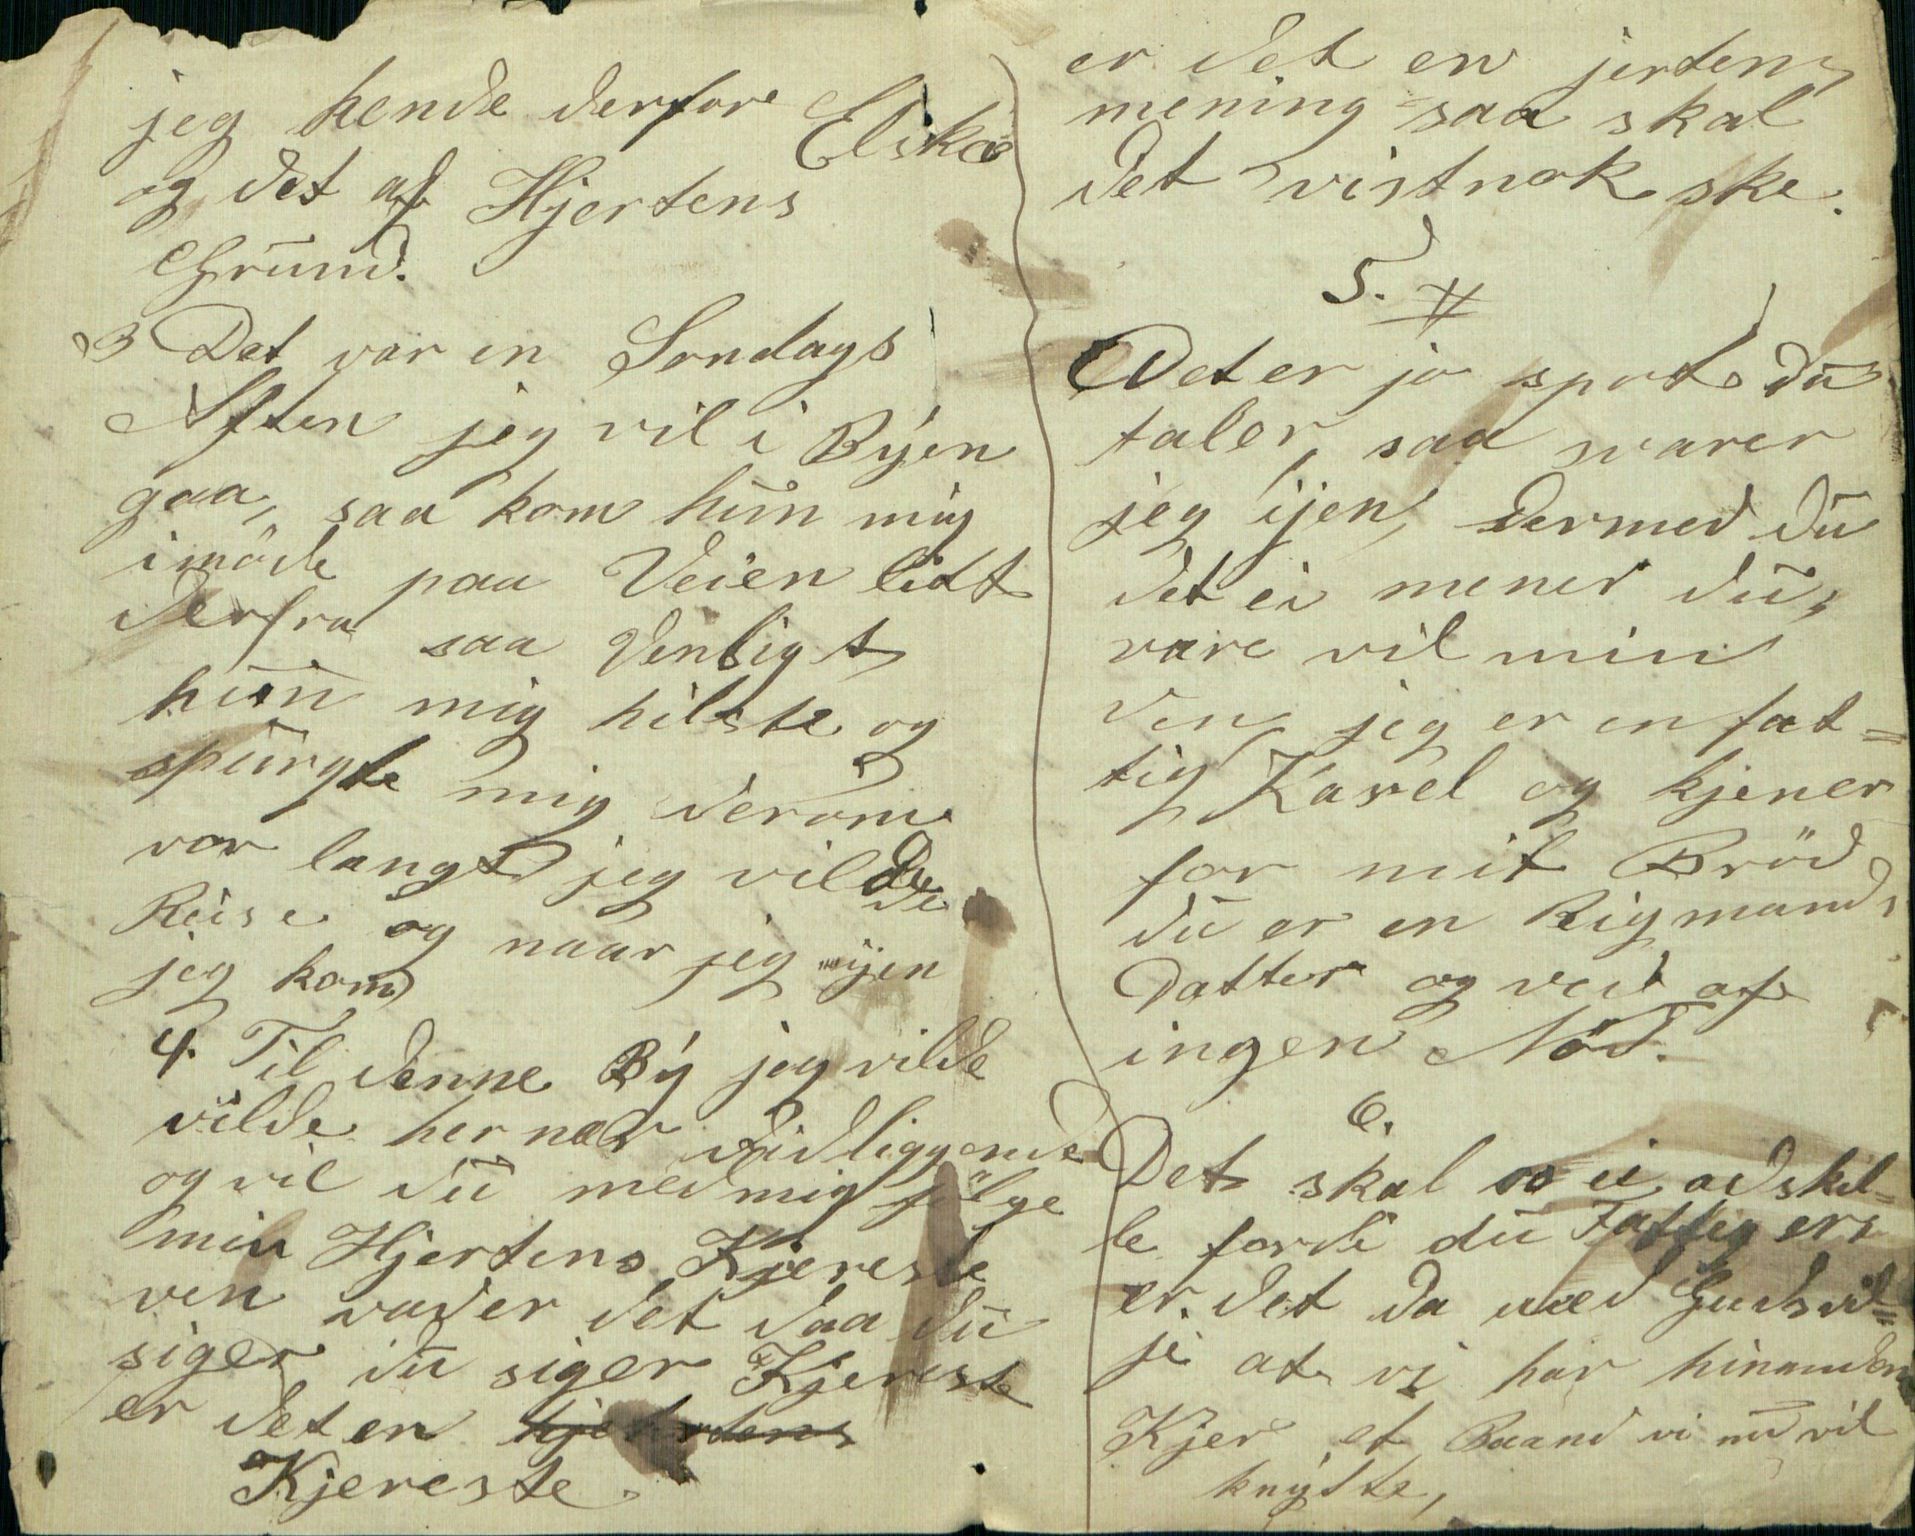 jeg hende derfore Elske
og det af Hjertens
Grund.
3 Det var en Søndags
Aften jeg vil i Byen
gaa, saa kom hun mig
imöde paa Veien lidt
derfra saa Venligt
hun mig hilste og
spurgte mig derom
vor langt jeg vilde
Reise og naar jeg ijen
jeg kom
4. Til denne By jeg vilde
vilde her nær vidliggende
og vil du med mig følge
min Hjertens Kjereste
ven vad er det daa du
siger du siger Kjereste
er det en hjertens
Kjereste.
er det en jertens
mening saa skal
det vistnok ske.
5.
Det er jo spot du
taler, saa svarer
jeg ijen, dermed du
det ei mener du,
vare vil min
Ven, jeg er en fat=
tig Karel og tjener
for mit Bröd,
du er en Rigmands
Datter og ved af
ingen Nöd.
6.
Det skal os ei adskil=
le fordi du Fattig er,
er det da med Guds vil=
je at vi har hinanden
Kjer et Baand vi nu vil
knytte,